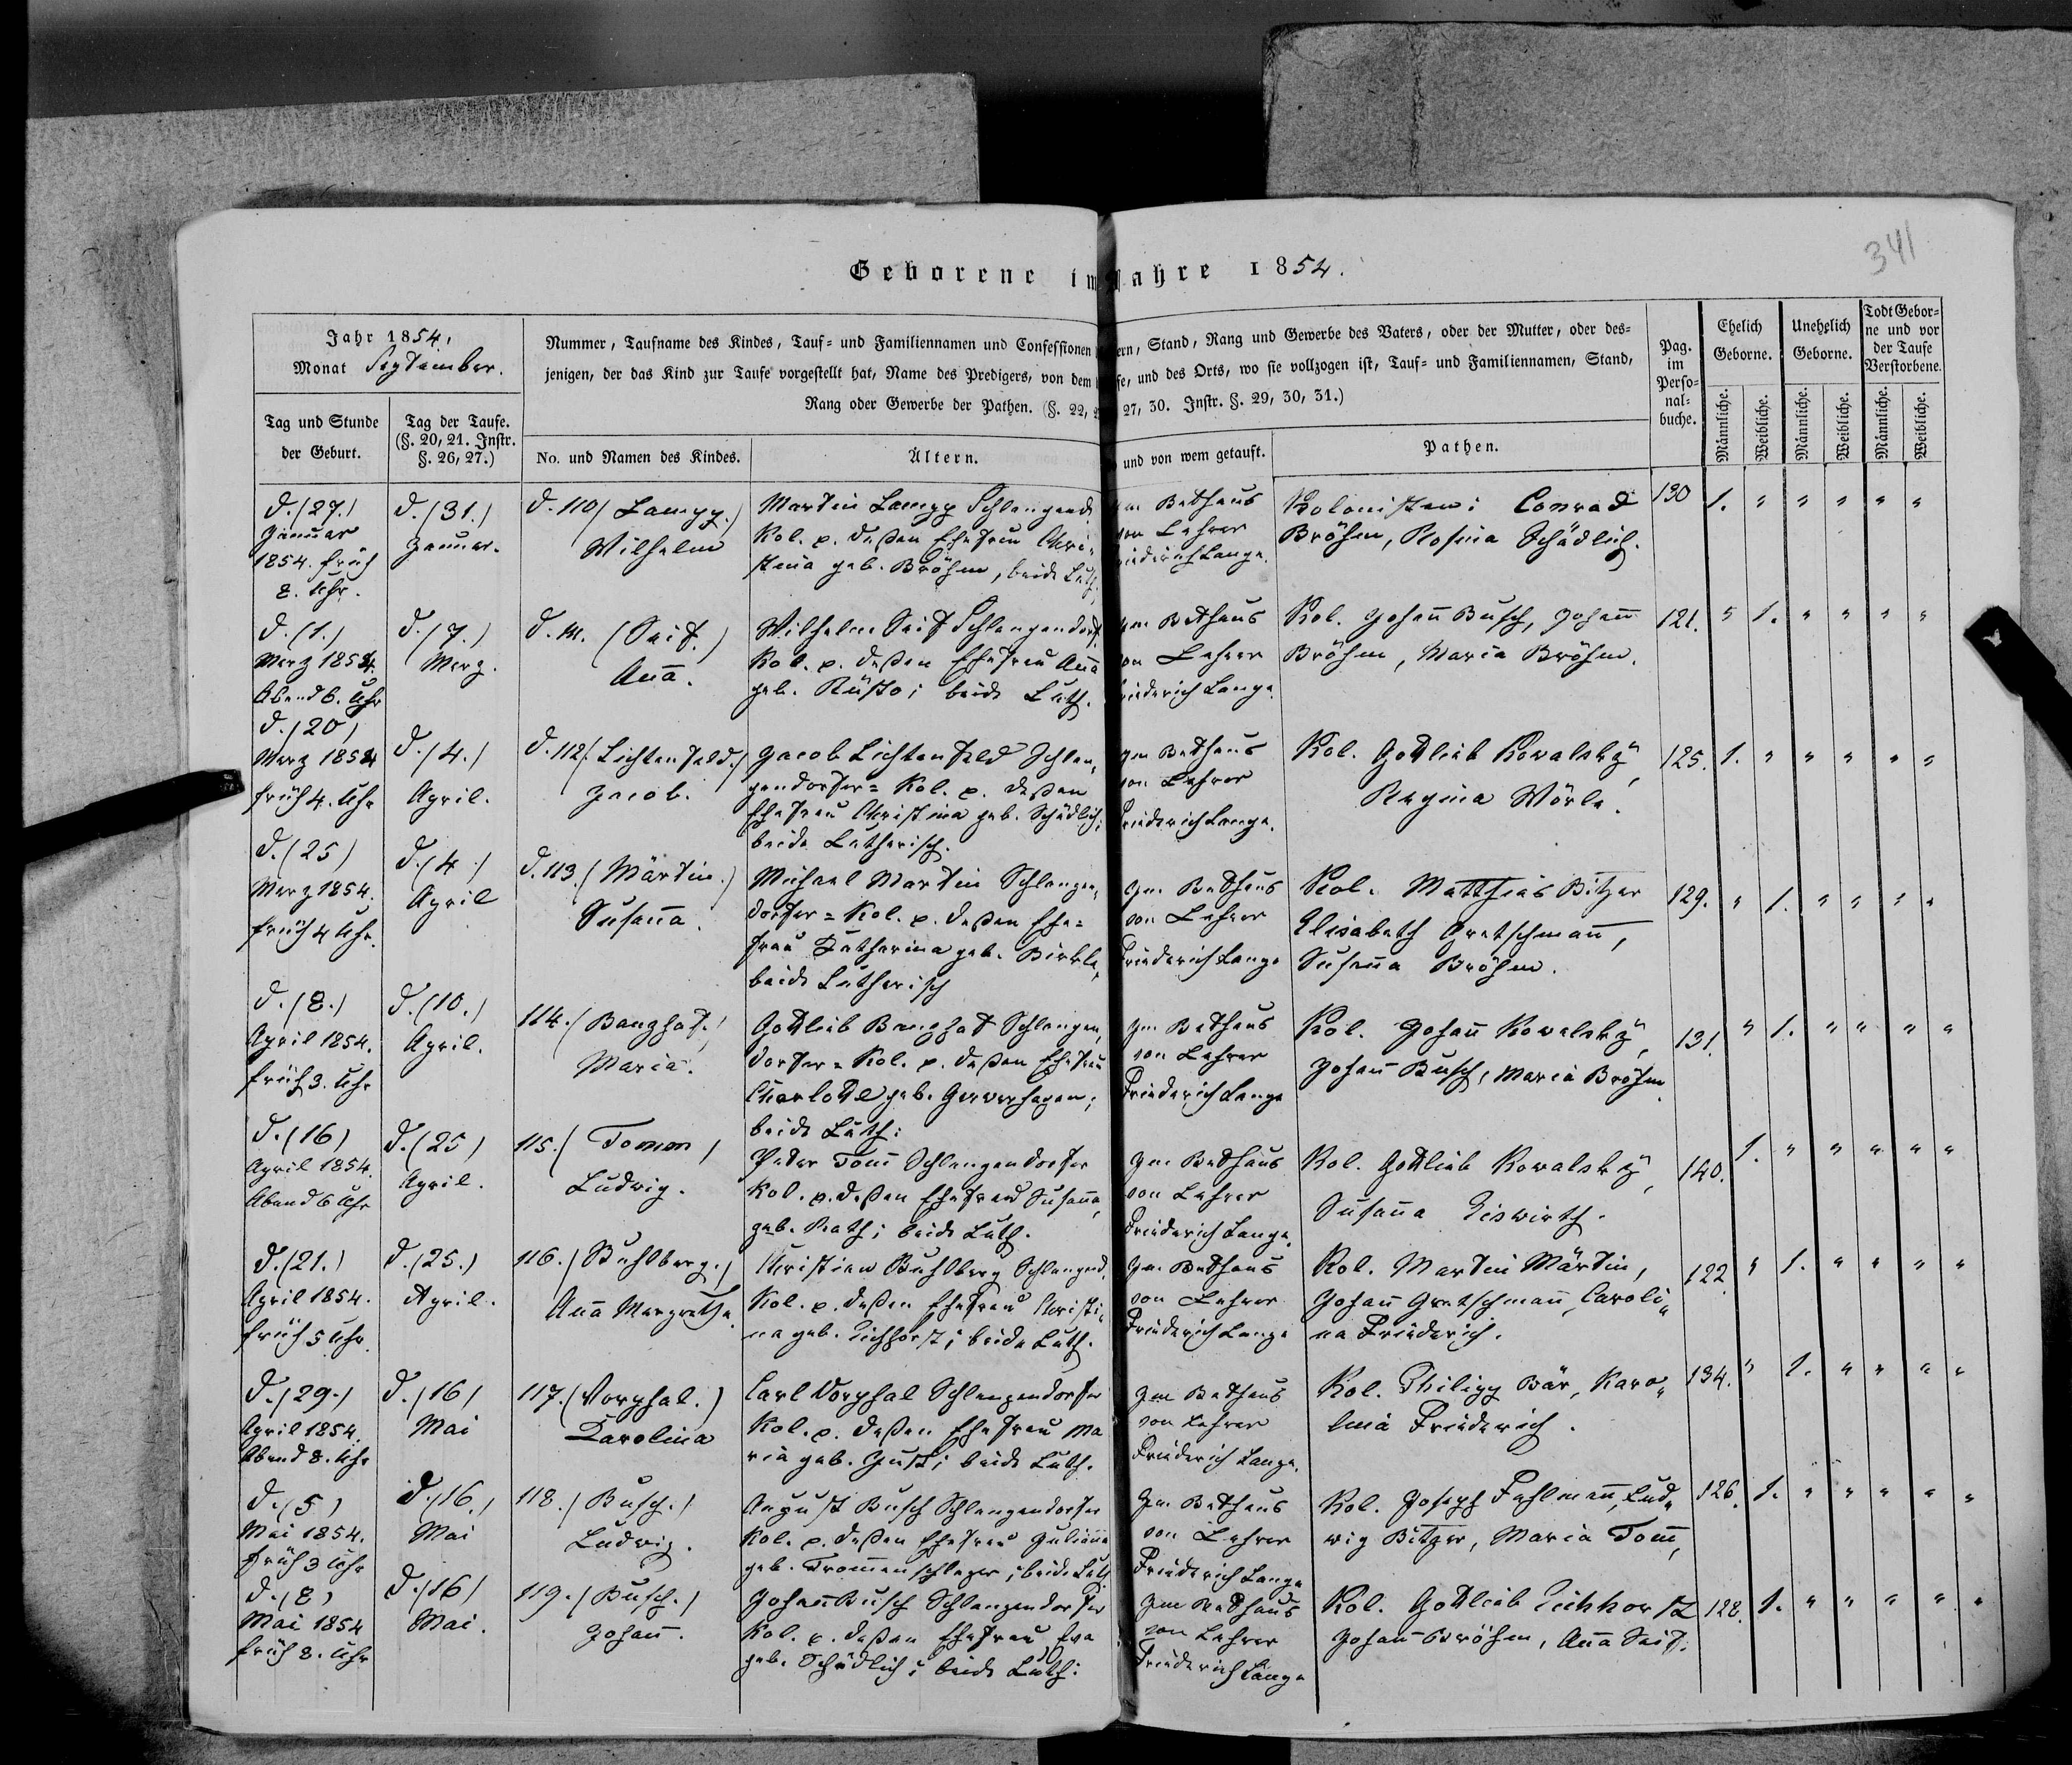 341
Geborene im Jahre 1854.
Jahr 1854,
Monat September.
Nummer, Taufname des Kindes, Tauf- und Familiennamen und Confessionen
ern, Stand, Rang und Gewerbe des Vaters, oder der Mutter, oder des=
jenigen, der das Kind zur Taufe vorgestellt hat, Name des Predigers, von dem
fe, und des Orts, wo sie vollzogen ist, Tauf- und Familiennamen, Stand,
Rang oder Gewerbe der Pathen. (§. 22,
27, 30. Instr. §. 29, 30, 31.)
Pag.
im
Perso=
nal=
buche.
Ehelich
Geborne.
Unehelich
Geborne.
Todt Gebor=
ne und vor
der Taufe
Verstorbene.
Tag und Stunde
der Geburt.
Tag der Taufe.
(§. 20, 21. Instr.
§. 26, 27.)
No. und Namen des Kindes.
Ältern.
und von wem getauft.
Pathen.
Männliche.
Weibliche.
Männliche.
Weibliche.
Männliche.
Weibliche.
d. (27.)
Januar
1854. früh
8. Uhr.
d. (31.)
Januar.
d. 110 / Lampp.)
Wilhelm
Martin Lampp Schlangend.
Kol. p. deßen Ehefrau Chri-
stina geb. Bröhm, beide Luth.
im Bethaus
von Lehrer
riederich Lange.
Kolonisten: Conrad
Bröhm, Rosina Schädlich.
130 1. " " " " "
d. (1.)
Merz 1854.
Abend 6. Uhr
d. (7.)
Merz.
d. 111. (Seif.)
Anna.
Wilhelm Seif Schlangendorf.
Kol. p. deßen Ehefrau Anna
geb. ; beide Luth.
im Bethaus
von Lehrer
riederich Lange.
Kol. Johann Busch, Johann
Bröhm, Maria Bröhm.
121. " 1. " " " "
d. (20)
Merz 1854
früh 4. Uhr
d. (4.)
April.
d. 112 (Lichtenfeld.)
Jacob.
Jacob Lichtenfeld Schlan-
gendorfer= Kol. p. deßen
Ehefrau Christina geb. Schädlich;
beide Lutherisch.
Im Bethaus
von Lehrer
Friederich Lange.
Kol. Gottlieb Kowalsky,
Regina Wörle.
125. 1. " " " " "
d. (25)
Merz 1854.
früh 4 Uhr.
d. (4.)
April
d. 113. (Märtin.)
Susanna.
Michael Martin Schlangen-
dorfer= Kol. p. deßen Ehe=
frau Katharina geb. Birkle,
beide Lutherisch
Im Bethaus
von Lehrer
Friederich Lange
Kol. Matthias Bitzer
Elisabeth Gretschmann,
Susanna Bröhm.
129. " 1. " " " "
d. (8.)
April 1854.
früh 3. Uhr
d. (10.)
April.
114. (Banzhaf.)
Maria.
Gottlieb Banzhaf Schlangen-
dorfer= Kol. p. deßen Ehefrau
Charlotte geb. ;
beide Luth:
Im Bethaus
von Lehrer
Friederich Lange
Kol. Johann Kowalsky,
Johann Busch, Maria Bröhm.
131. " 1. " " " "
d. (16)
April 1854.
Abend 6 Uhr
d. (25)
April.
115. / Tomm /
Ludwig.
Peter Tomm Schlangendorfer
Kol. p. deßen Ehefrau Susanna,
geb. Rath; beide Luth.
Im Bethaus
von Lehrer
Friederich Lange.
Kol. Gottlieb Kowalsky,
Susanna Eiswirth.
140. 1. " " " " "
d. (21.)
April 1854.
früh 5 Uhr.
d. (25.)
April.
116. / Buhlberg. /
Anna Margretha.
Christian Buhlberg Schlangend.
Kol. p. deßen Ehefrau Christi-
na geb. Eichhorst; beide Luth.
Im Bethaus
von Lehrer
Friederich Lange
Kol. Martin Märtin,
Johann Gretschmann, Caroli-
na Friederich.
122. " 1. " " " "
d. (29.)
April 1854.
Abend 8. Uhr
d. (16)
Mai
117. (Vorphal.)
Karolina
Carl Vorphal Schlangendorfer
Kol. p. deßen Ehefrau Ma
ria geb. Gust; beide Luth.
Im Bethaus
von Lehrer
Friederich Lange.
Kol. Philipp Bär, Karo-
lina Friederich.
134. " 1. " " " "
d. (5)
Mai 1854.
früh 3 Uhr
d. (16.)
Mai
118. / Busch. /
Ludwig.
August Busch Schlangendorfer
Kol. p. deßen Ehefrau Julianna
geb. Trommenschlager; beide Luth
Im Bethaus
von Lehrer
Friederich Lange
Kol. Joseph Fehlmann, Lud-
wig Bitzer, Maria Tomm,
126. 1. " " " " "
d. (8)
Mai 1854
früh 8. Uhr
d. (16)
Mai.
119. / Busch. /
Johann.
Johann Busch Schlangendorfer
Kol. p. deßen Ehefrau Eva
geb. Schädlich; beide Luth:
Im Bethaus
von Lehrer
Friederich Lange
Kol. Gottlieb Eichhorst
Johann Bröhm, Anna Seif.
128. 1. " " " " "